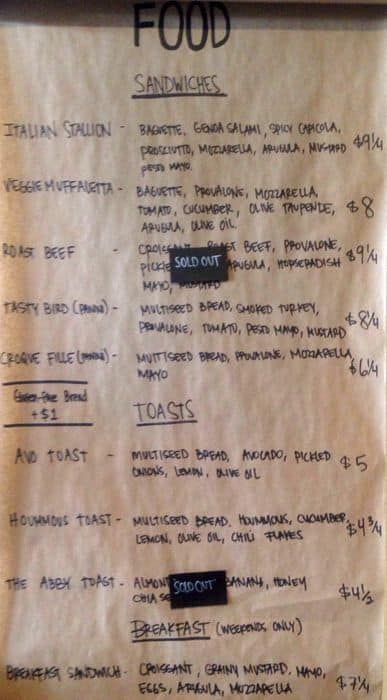 FOOD
SANDWICHES
ITALIAN STALLION - BAGUETTE, GENOA SALAMI, SPICY CAPICOLA,
PROSCIUTTO, MOZZARELLA, ARUGULA, MUSTARD $9 1/4
PESTO MAYO.
VEGGIE MUFFALETTA - BAGUETTE, PROVALONE, MOZZARELLA,
TOMATO, CUCUMBER, OLIVE TAUPENDE, $8
ARUGULA, OLIVE OIL.
ROAST BEEF - ROAST BEEF, PROVALONE, $9 1/4
PICKLE SOLD OUT ARUGULA, HORSERADISH
MAYO, MUSTARD
TASTY BIRD (PANINI) - MULTISEED BREAD, SMOKED TURKEY, $8 1/4
PROVALONE, TOMATO, PESTO MAYO, MUSTARD
CROQUE FILLE (PANINI) - MULTISEED BREAD, PROVALONE, MOZZARELLA,
MAYO $6 1/4
Gluten-Free Bread
+$1
TOASTS
AVO TOAST - MULTISEED BREAD, AVOCADO, PICKLED $5
ONIONS, LEMON, OLIVE OIL
HOUMMOUS TOAST - MULTISEED BREAD, HOUMMOUS, CUCUMBER, $4 3/4
LEMON, OLIVE OIL, CHILI FLAKES
THE ABBY TOAST - ALMOND SOLD OUT BANANA, HONEY
CHIA $4 1/2
BREAKFAST (WEEKENDS ONLY)
BREAKFAST SANDWICH - CROISSANT, GRAINY MUSTARD, MAYO, $7 1/4
EGGS, ARUGULA, MOZZARELLA